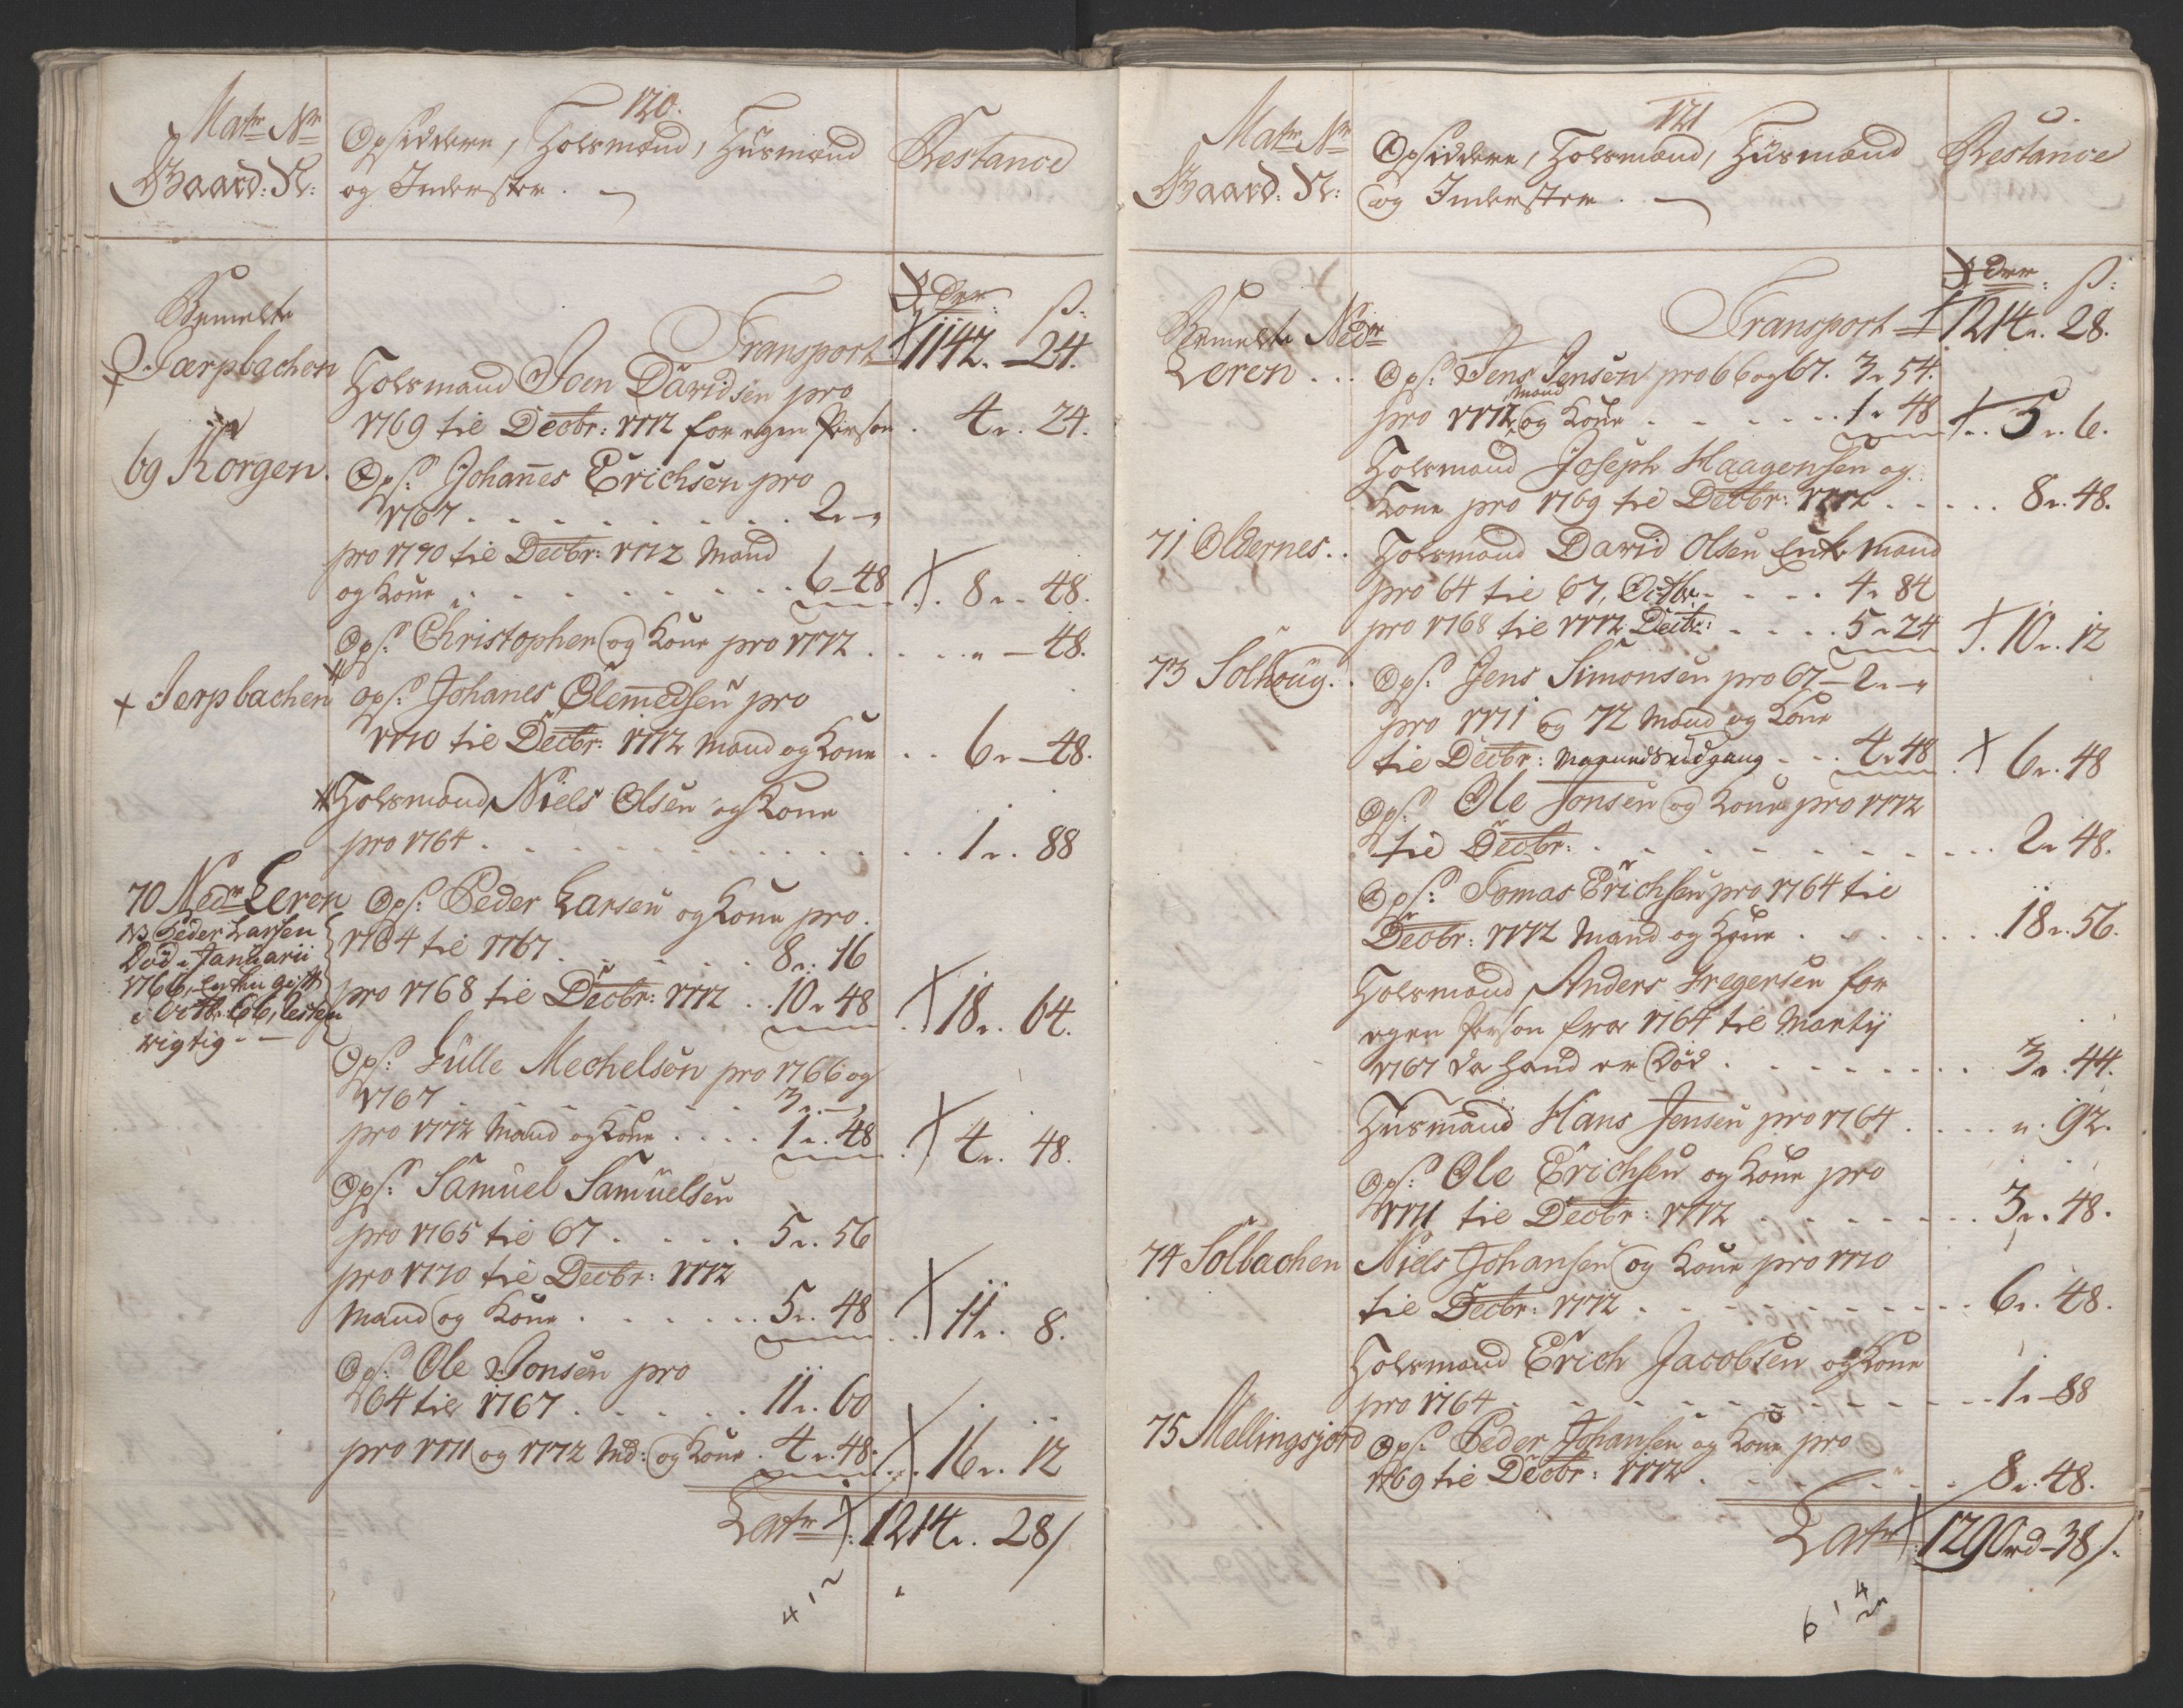 120.
Matr Nr
Gaard: N:
Opsiddere, Folsmænd, Huusmænd
og Inderster. —
Restance
Rdr ß:
Bemelte
Jærpbachen
Transport 1142. - 24.
Folsmand Joen Davidsen pro
1769 til Decbr: 1772 for egen Person . 4 „ 24.
69 Korgen.
Ops: Johanes Erichsen pro
1767 . . . . . . 2 „ - „
pro 1770 til Decbr: 1772 Mand
og Kone . . . . . . 6 - 48 . 8 „ - 48.
Ops: Christopher og Kone pro 1772 . . . „ - 48.
+ Jerpbachen
ops: Johanes Clemedsen pro
1770 til Decbr: 1772 Mand og Kone . . 6 „ - 48.
Folsmand Niels Olsen og Kone
pro 1764 . . . . . . 1 „ . 88
70 Nedr Leren
NB Peder Larsen
Død i Januarii
1766, Enken gift
i Octbr 66, Resten
rigtig - -
Ops: Peder Larsen og Kone pro.
1764 til 1767 . . . . . 8 „ 16
pro 1768 til Decbr: 1772 . . 10 „ 48 . 18 „ . 64.
Ops: Gulle Mechelsen pro 1766 og
1767 . . . . . . 3 „ - „
pro 1772 Mand og Kone . . . . 1 „ . 48 . 4 „ . 48.
Ops: Samuel Samuelsen
pro 1765 til 67 . . . . 5 „ . 56
pro 1770 til Decbr: 1772
Mand og Kone . . . . . . 5 „ . 48 . . 11 „ . 8.
Ops: Ole Jonsen pro
64 til 1767 . . . . . 11 „ . 60
pro 1771 og 1772 Md: og Kone . 4 „ . 48. . . 16 „ . 12
Latr 1214 „ . 28 ß
121
Matr Nr
Gaard: N:
Opsiddere, Folsmænd, Huusmænd
og Inderster. —
Restance
Rdr ß:
Bemelte Nedr
Leren . . .
Transport 1214 „ . 28.
Ops: Jens Jensen pro 66 og 67. 3 „ 54.
Mand
pro 1772 og Kone . . . . . . 1 „ 48 . . 5 „ . 6.
Folsmand Joseph Haagensen og
Kone pro 1769 til Decbr: 1772 . . . . . 8 „ . 48.
71 Oldernes . .
Folsmand David Olsen Enke Mand
pro 64 til 67, Octbr . . . . 4 „ 84
pro 1768 til 1772 Decbr: . . . . 5 „ 24 . 10 „ . 12
73 Solhoug . .
Ops: Jens Simonsen pro 67 - 2 „ - „
pro 1771 og 72 Mand og Kone
til Decbr: . . . 4 „ 48 . 6 „ . 48
Ops: Ole Jonsen og Kone pro 1772
til Decbr: . . . . . . . . 2 „ 48.
Ops: Tomas Erichsen pro 1764 til
Decbr: 1772 Mand og Kone . . . . . . 18 „ . 56.
Folsmand Anders Gregersen for
egen Person fra 1764 til Martij
1767 da hand er Død . . . . . . . 3 „ . 44.
Huusmand Hans Jensen pro 1764 . . . . „ . 92.
Ops: Ole Erichsen og Kone pro
1771 til Decbr: 1772 . . . . . . . 3 „ . 48.
74 Solbachen
Niels Johansen og Kone pro 1770
til Decbr: 1772 . . . . . . . . 6 „ . 48.
Folsmand Erich Jacobsen og Kone
pro 1764 . . . . . . . . . 1 „ - 88
75 Mellingsjord
Ops: Peder Johansen og Kone pro
1769 til Decbr: 1772 . . . . . . 8 „ . 48.
Latr 1290 rd - 38 ß.